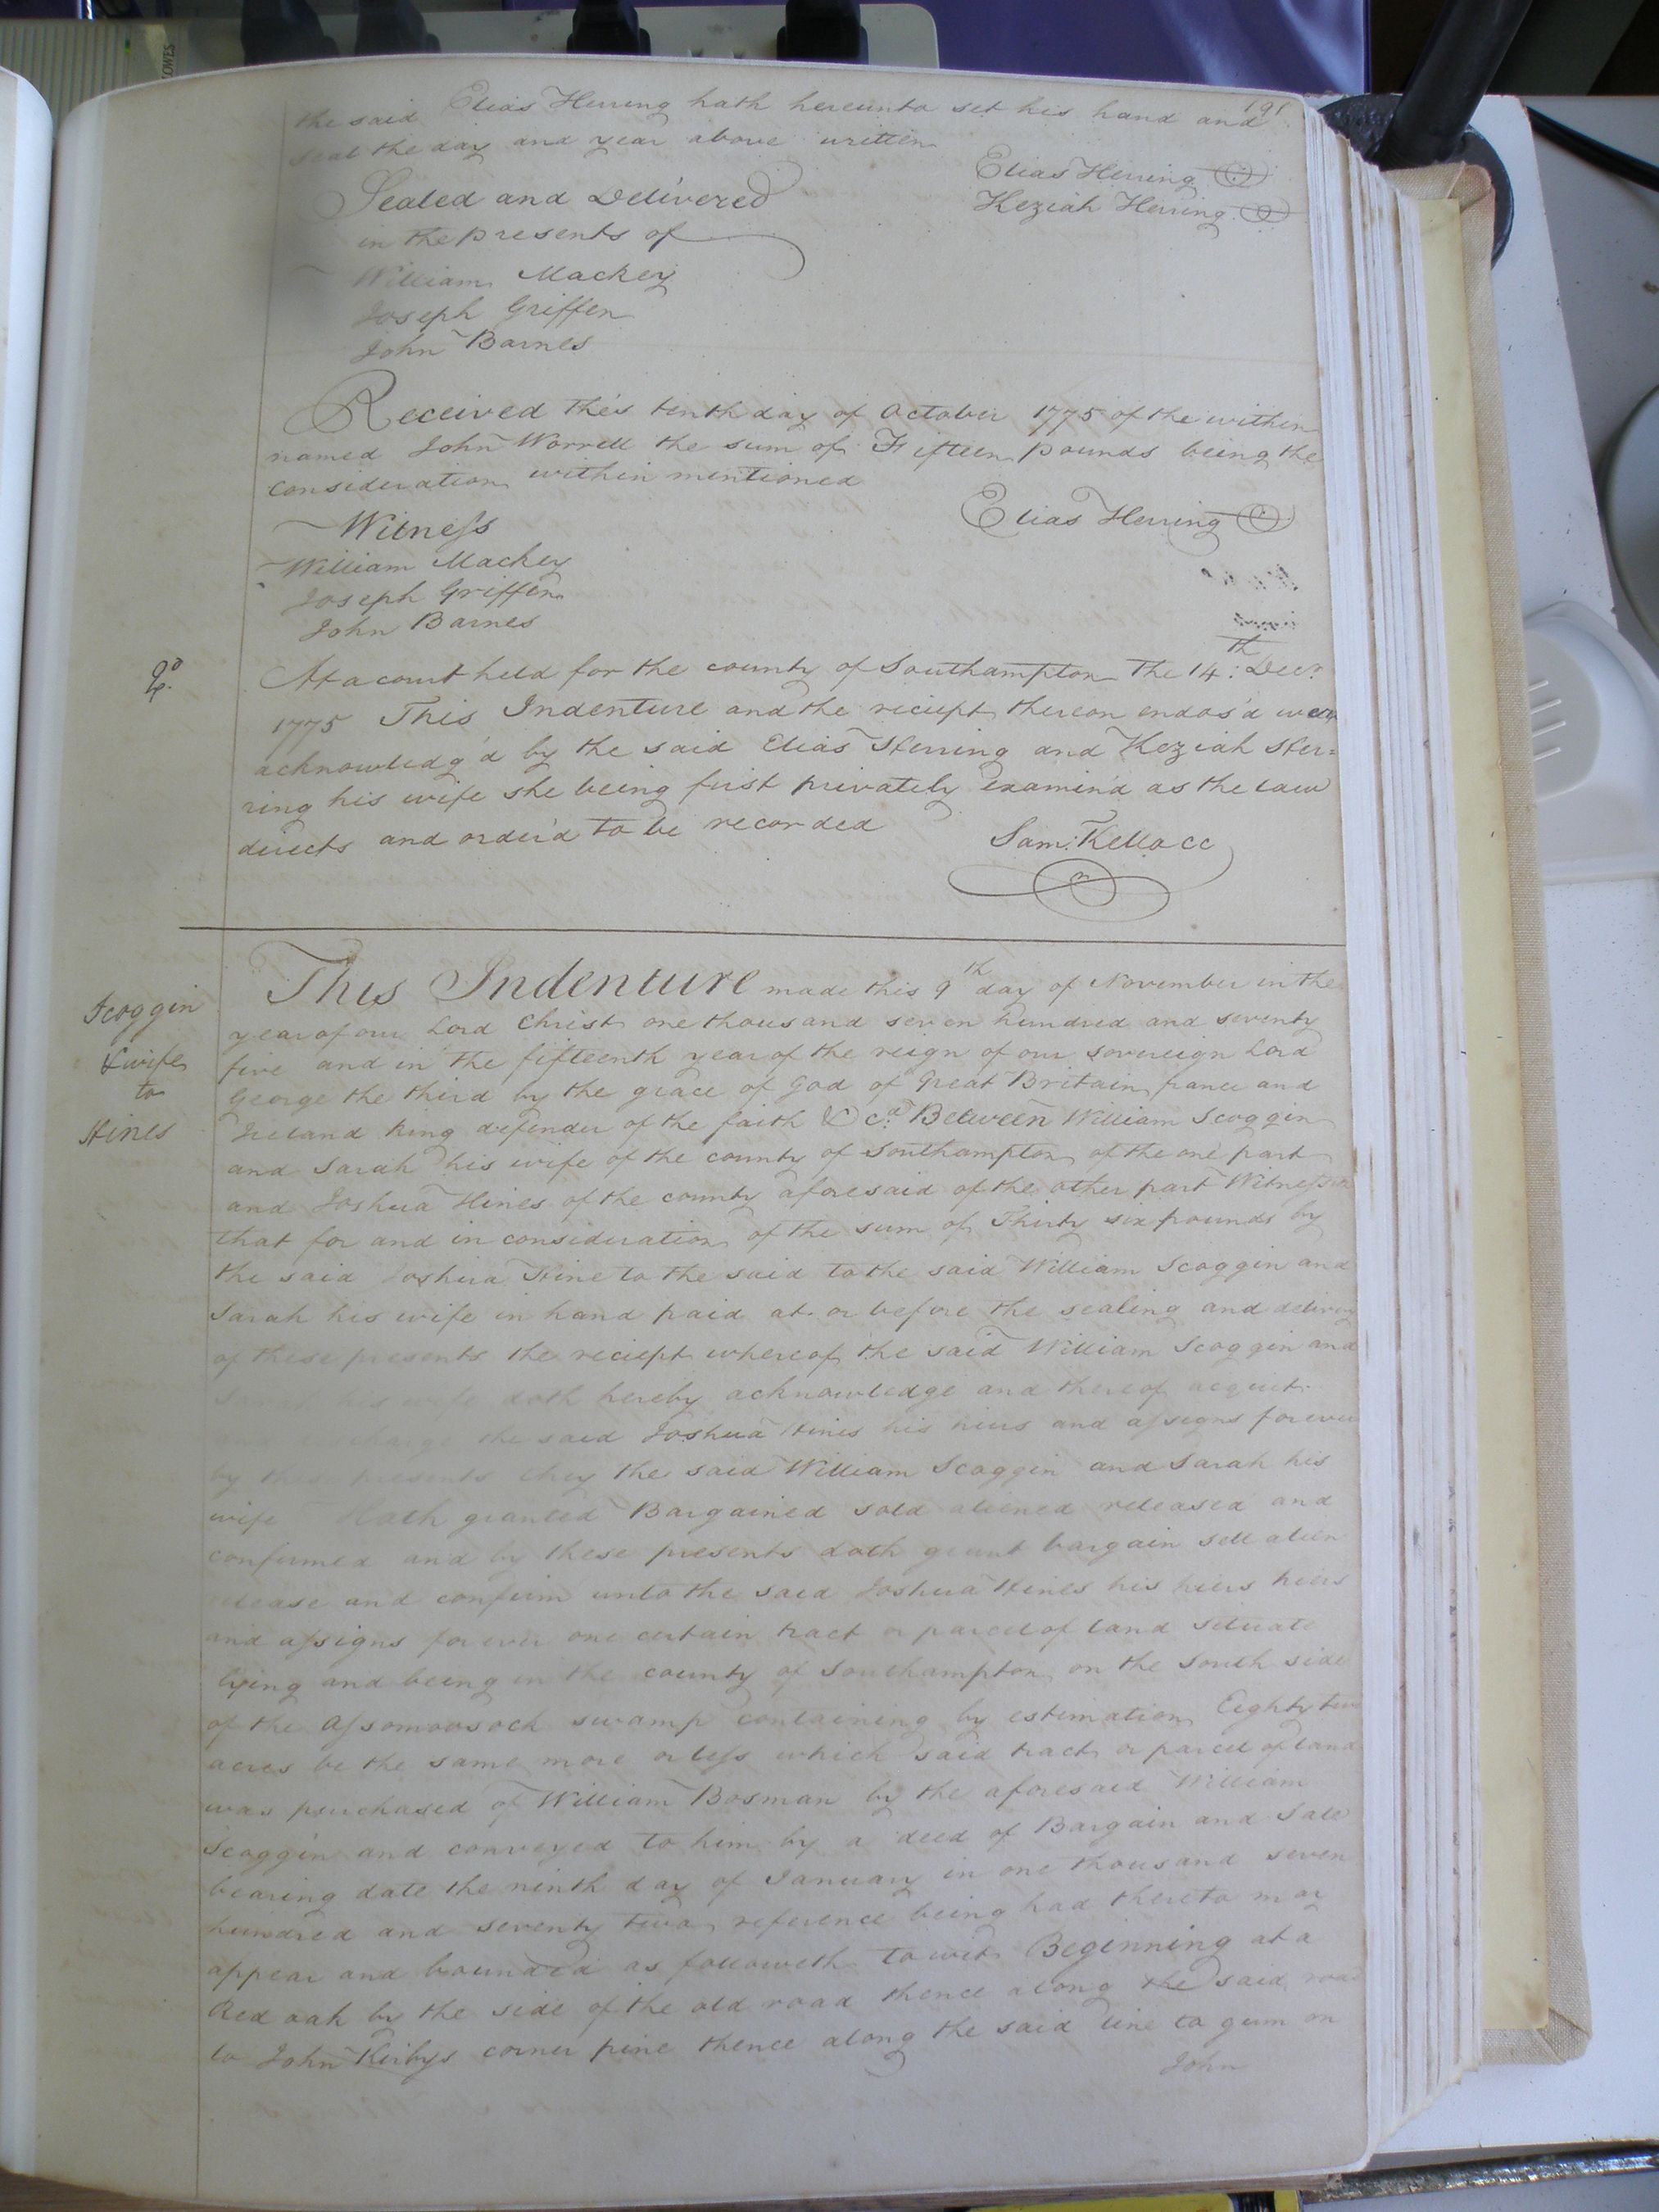 191
the said Elias Herring hath hereunto set his hand and
seal the day and year above written
Elias Herring
Keziah Herring
Sealed and Delivered
in the presents of
William Mackey
Joseph Griffen
John Barnes
Received this tenth day of October 1775 of the within
named John Worrell the sum of Fifteen pounds being the
consideration within mentioned
Elias Herring
Witness
William Mackey
Joseph Griffen
John Barnes
At a court held for the county of Southampton the 14th: Decr.
1775 This Indenture and the reciept thereon endos'd were
acknowledg'd by the said Elias Herring and Keziah Her=
ring his wife she being first privately examin'd as the law
directs and order'd to be recorded
Sam: Kello CC
Scoggin
& wife
to
Hines
This Indenture made this 9th day of November in the
year of our Lord Christ one thousand seven hundred and seventy
five and in the fifteenth year of the reign of our sovereign Lord
George the third by the grace of God of Great Britain france and
Ireland King defender of the faith &ca. Between William Scoggin
and Sarah his wife of the county of Southampton of the one part
and Joshua Hines of the county aforesaid of the other part
that for and in consideration of the sum of Thirty six pounds by
the said Joshua Hine to the said to the said William Scoggin and
Sarah his wife in hand paid at or before the sealing and delivery
of these presents the reciept whereof the said William Scoggin and
Sarah his wife doth hereby acknowledge and thereof acquit
the said Joshua Hines his hiers and assigns forever
by these presents they the said William Scoggin and Sarah his
wife Hath granted Bargained sold aliened released and
confirmed and by these presents doth grant bargain sell alien
release and confirm unto the said Joshua Hines his hiers hiers
and assigns forever one certain tract or parcel of land situate
lying and being in the county of Southampton on the South side
of the Assomoosock swamp containing by estimation Eighty two
acres be the same more or less which said tract or parcel of land
was purchased of William Bosman by the aforesaid William
Scoggin and conveyed to him by a deed of Bargain and Sale
bearing date the ninth day of January in one thousand seven
hundred and seventy two reference being had thereto may
appear and bounded as followeth to wit Beginning at a
Red oak by the side of the old road thence along the said road
to John Kirbys corner pine thence along the said line to gum on
John